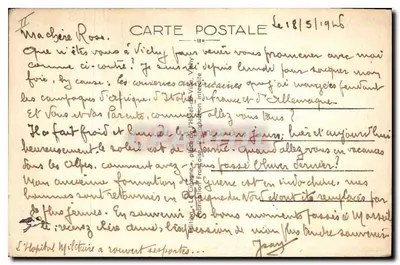 II
CARTE POSTALE
Le 18/5/1946
Ma chère Rose.
Que n'êtes vous à Vichy pour venir vous promener avec moi
comme ci-contre? Je suis ici depuis lundi pour soigner mon
foie, by cause: les conserves américaines que j'ai mangées pendant
les campagnes d'Afrique, d'Italie, France et d'Allemagne.
Et vous et vos Parents, comment allez vous tous?
Il a fait froid et jours, hier et aujourd'hui
heureusement le soleil est de Quand allez vous en vacances
dans les Alpes. comment avez passé l'hiver dernier?
Mon ancienne formation de guerre est en Indochine. mes
hommes sont retournés en du Nord et ont été remplacés par
de plus jeunes. En souvenir des bons moments passés à
recevez chère amie, l'expression de mon plus tendre souvenir
L'Hopital Militaire a rouvert ses portes...